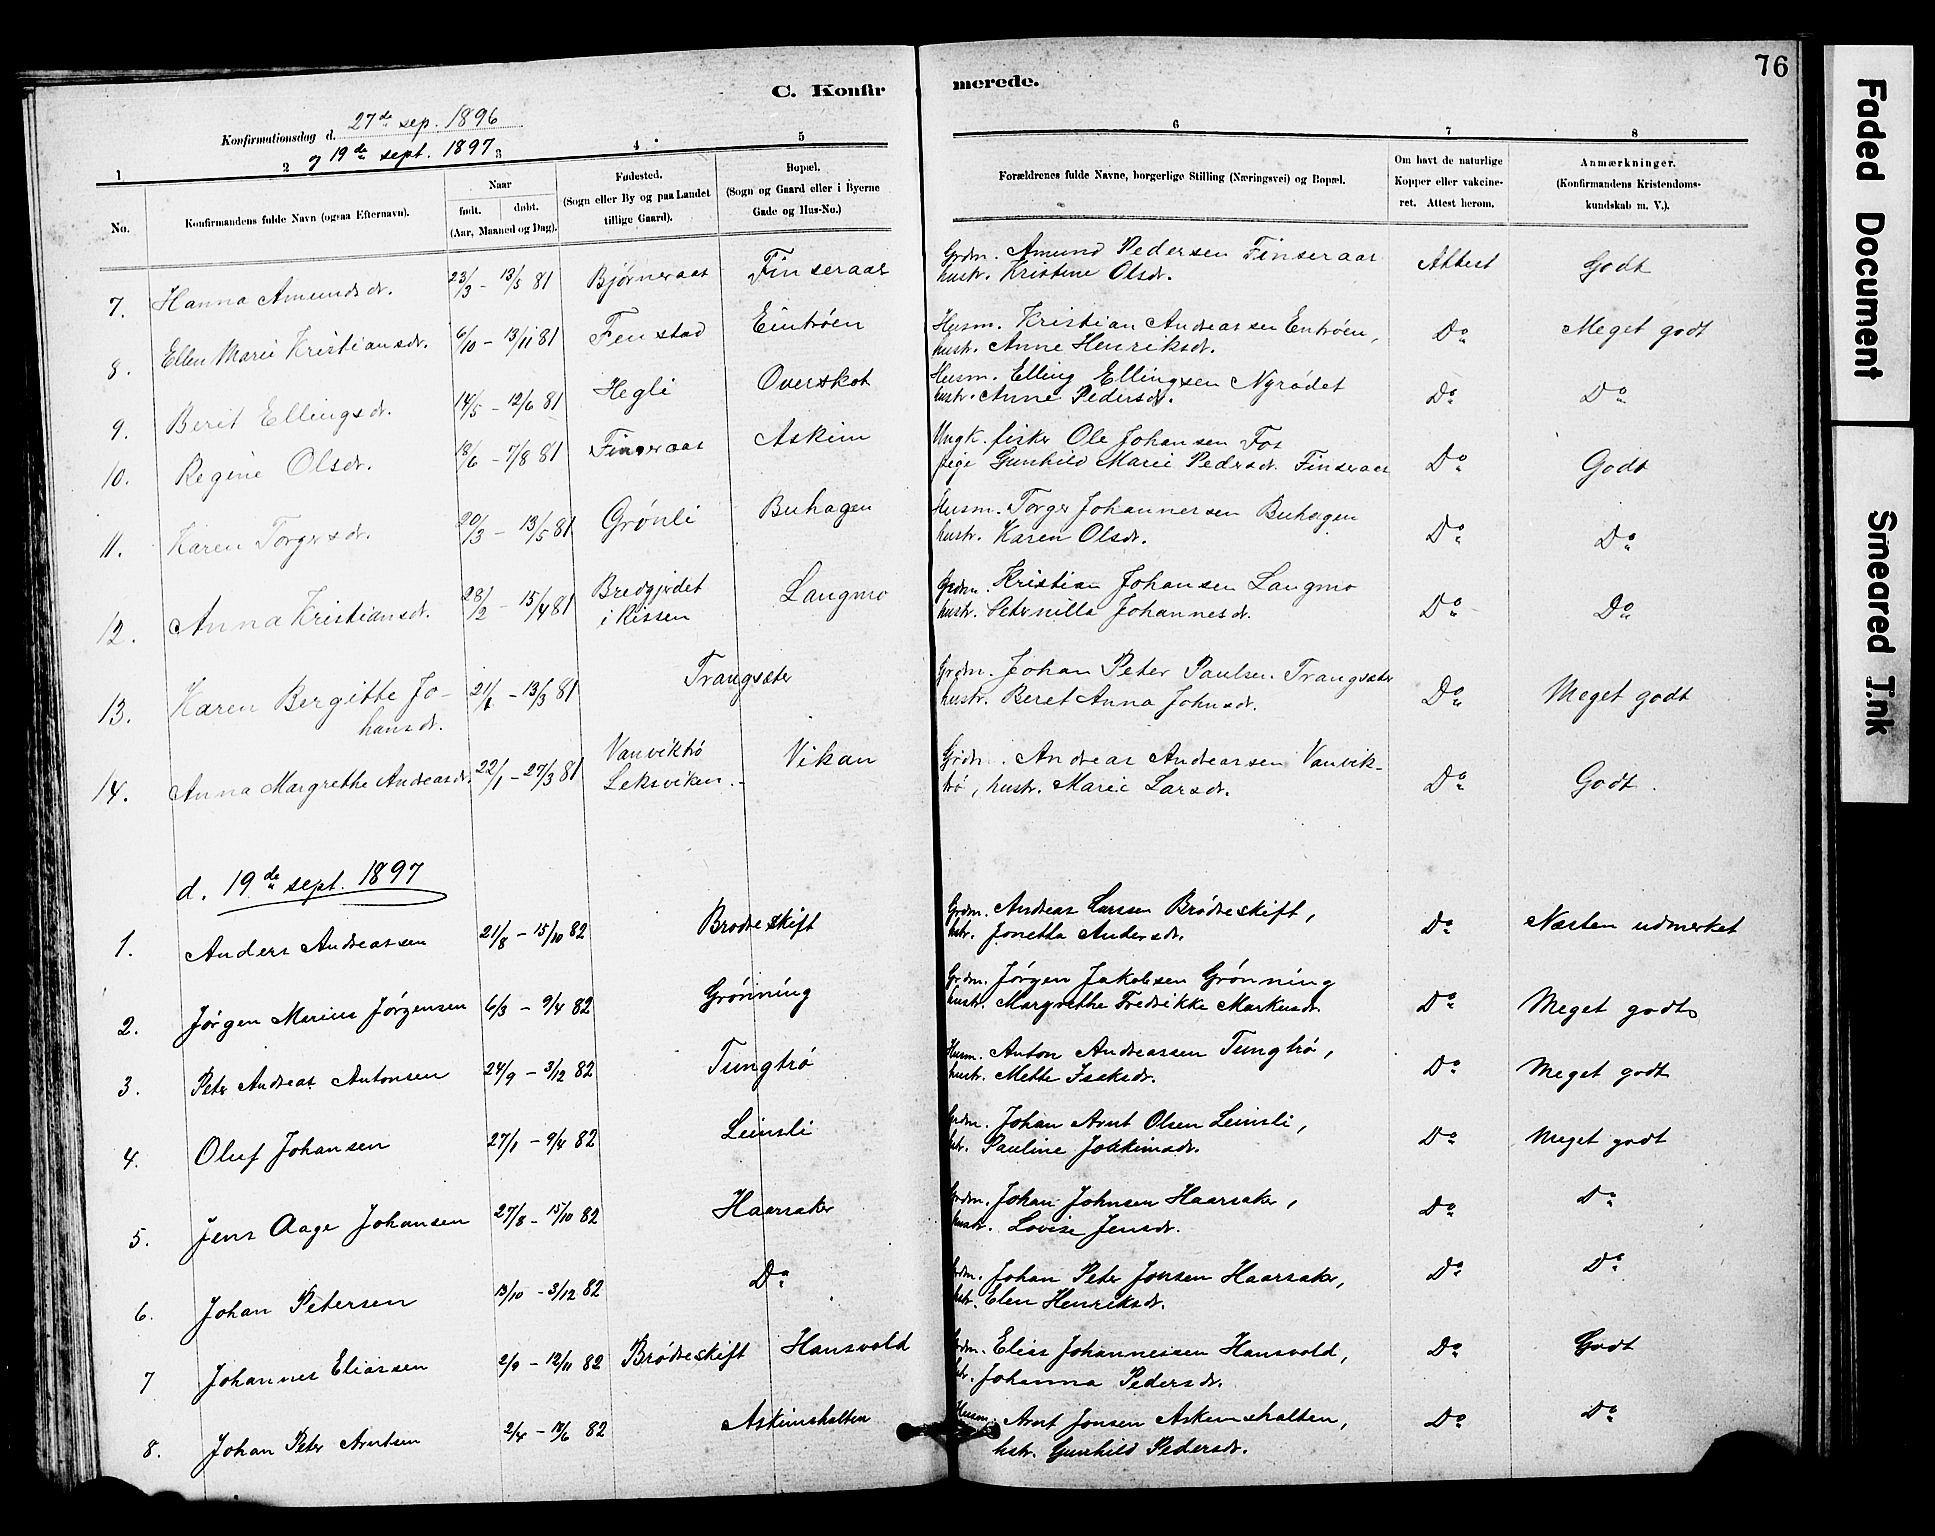 76
C. Konfirmerede.
Konfirmationsdag d. 27de sep. 1896
og 19de sept. 1897
1 2 3 4 5 6 7 8
No. Konfirmandens fulde Navn (ogsaa Efternavn). Naar født. døbt. (Aar, Maaned og Dag). Fødested. (Sogn eller By og paa Landet tillige Gaard). Bopæl. (Sogn og Gaard eller i Byerne Gade og Hus-No.) Forældrenes fulde Navne, borgerlige Stilling (Næringsvei) og Bopæl. Om havt de naturlige Kopper eller vakcineret. Attest herom. Anmærkninger. (Konfirmandens Kristendomskundskab m. V.).
7. Hanna Amundsdr. 23/3 - 13/5 81 Bjørneraas Finseraas Grdm. Amund Pedersen Finseraas hustr. Kristine Olsdr. Attest Godt
8. Ellen Marie Kristiansdr. 6/10 - 13/11 81 Fenstad Eintrøen Husm. Kristian Andreassen Entrøen, hustr. Anne Henriksdr. Do Meget godt
9. Berit Ellingsdr. 14/5 - 12/6 81 Hegli Overskot Husm. Elling Ellingsen Nyrødet hustr. Anne Pedersdr. Do Do
10. Regine Olsdr. 18/6 - 7/8 81 Finseraas Askim Ungk. fisker Ole Johansen Fos pige Gunhild Marie Pedersdr. Finseraas Do Godt
11. Karen Torgersdr. 20/3 - 13/5 81 Grønli Buhagen Husm. Torger Johannessen Buhagen hustr. Karen Olsdr. Do Do
12. Anna Kristiansdr. 28/2 - 15/4 81 Bredgjerdet i Rissen Langmo Grdm. Kristian Johansen Langmo hustr. Peternilla Johannesdr. Do Do
13. Karen Bergitte Johansdr. 21/1 - 13/3 81 Trangsæter Grdm. Johan Peter Paulsen Trangsæter hustr. Beret Anna Johnsdr. Do Meget godt
14. Anna Margrethe Andreasdr. 22/1 - 27/3 81 Vanviktrø Leksviken Vikan Grdm. Andreas Andreassen Vanviktrø, hustr. Marie Larsdr. Do Godt.
d. 19de sept. 1897
1. Anders Andreassen 21/8 - 15/10 82 Brødreskift Grdm. Andreas Larsen Brødreskift, hstr. Jonetta Andersdr. Do Næsten udmerket
2. Jørgen Marius Jørgensen 6/3 - 9/4 82 Grønning Grdm. Jørgen Jakobsen Grønning hustr. Margrethe Fredrikke Markusdr. Do Meget godt
3. Peter Andreas Antonsen 24/9 - 3/12 82 Tungtrø Husm. Anton Andreassen Tungtrø, hustr. Mette Isaksdr. Do Meget godt
4. Oluf Johansen 27/1 - 9/4 82 Leinsli Grdm. Johan Arnt Olsen Leinsli, hstr. Pauline Joakimsdr. Do Meget godt
5. Jens Aage Johansen 27/8 - 15/10 82 Haarsaker Grdm. Johan Johnsen Haarsaker, hustr. Lovise Jensdr. Do Do
6. Johan Petersen 13/10 - 3/12 82 Do Grdm. Johan Peter Jonsen Haarsaker, hstr. Elen Henriksdr. Do Do
7 Johannes Eliassen 2/9 - 12/11 82 Brødreskift Hansvold Grdm. Elias Johannessen Hansvold, hstr. Johanna Pedersdr. Do Godt
8. Johan Peter Arntsen 2/4 - 18/6 82 Askimshalten Husm. Arnt Jonsen Askimshalten, hstr. Gunhild Pedersdr. Do Do
Faded Document
Smeared Ink